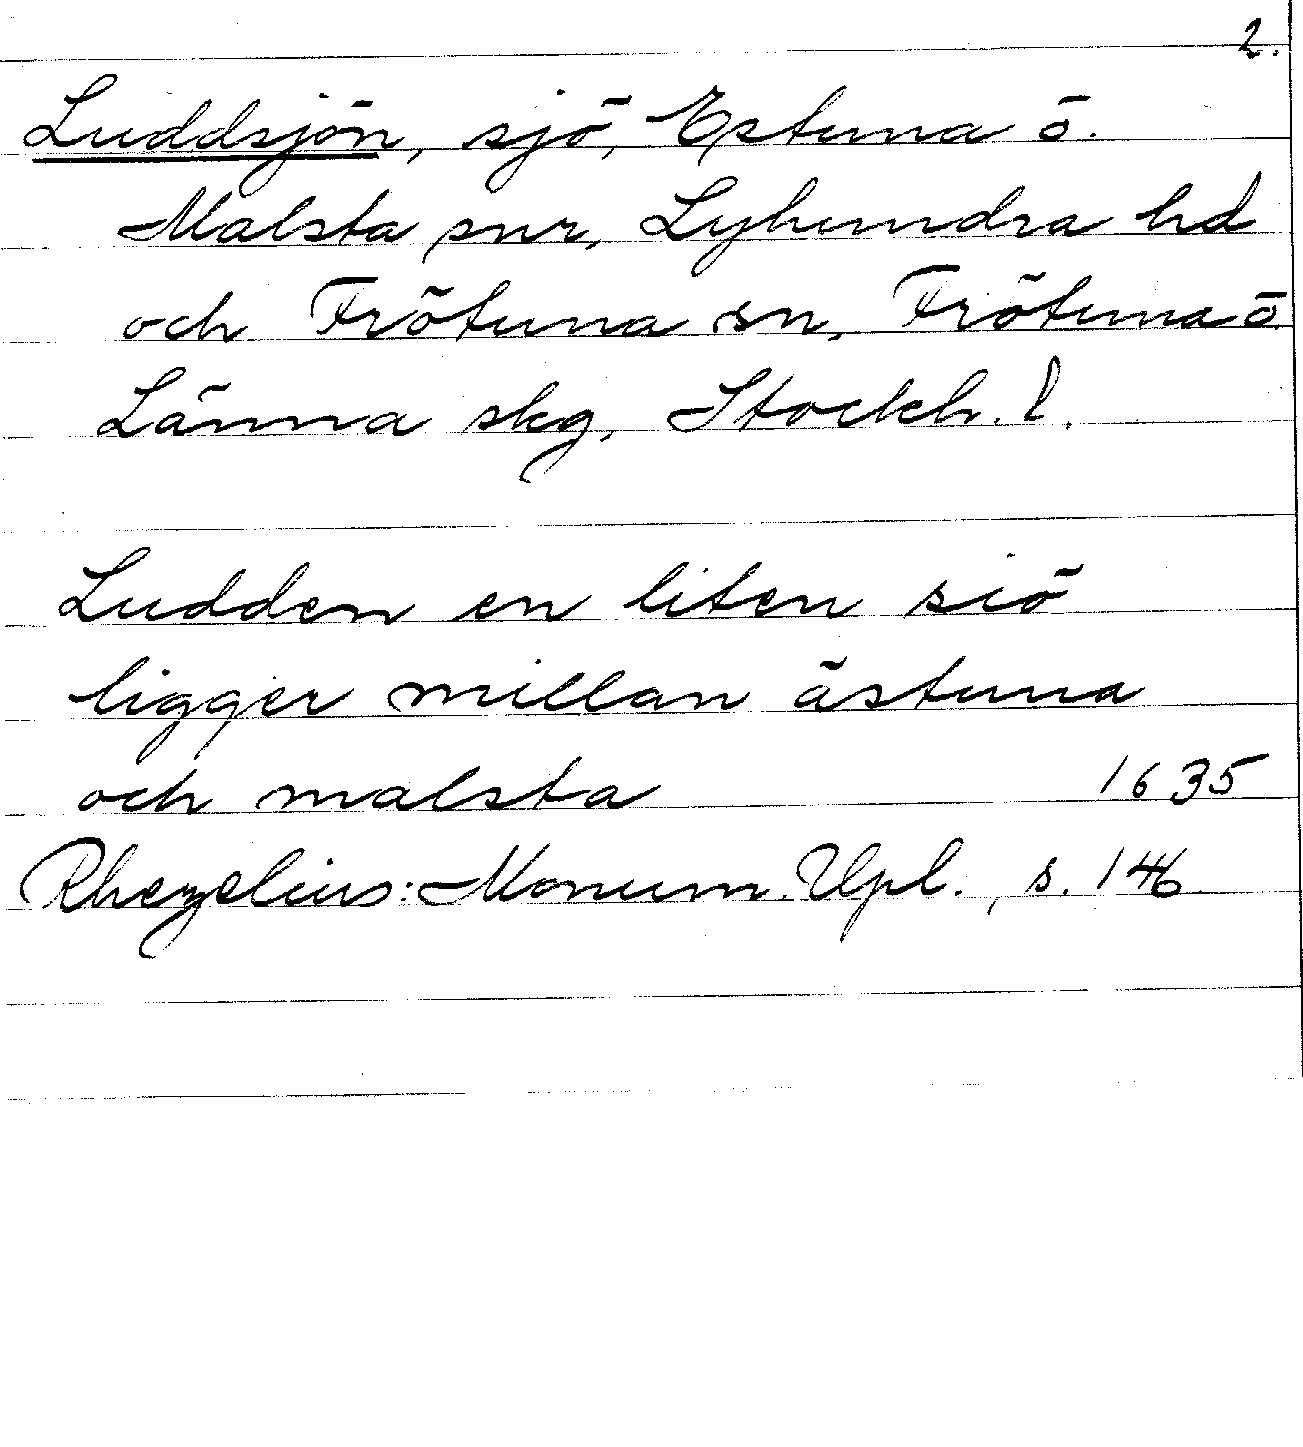 2.
Luddsjön, sjö, Estuna o.
Malsta snr, Lyhundra hd
och Frötuna sn, Frötuna o
Länna skg, Stockh. l.
Ludden en liten siö
ligger millan ästuna
och malsta 1635
Rhezelius: Monum. Upl., s. 146